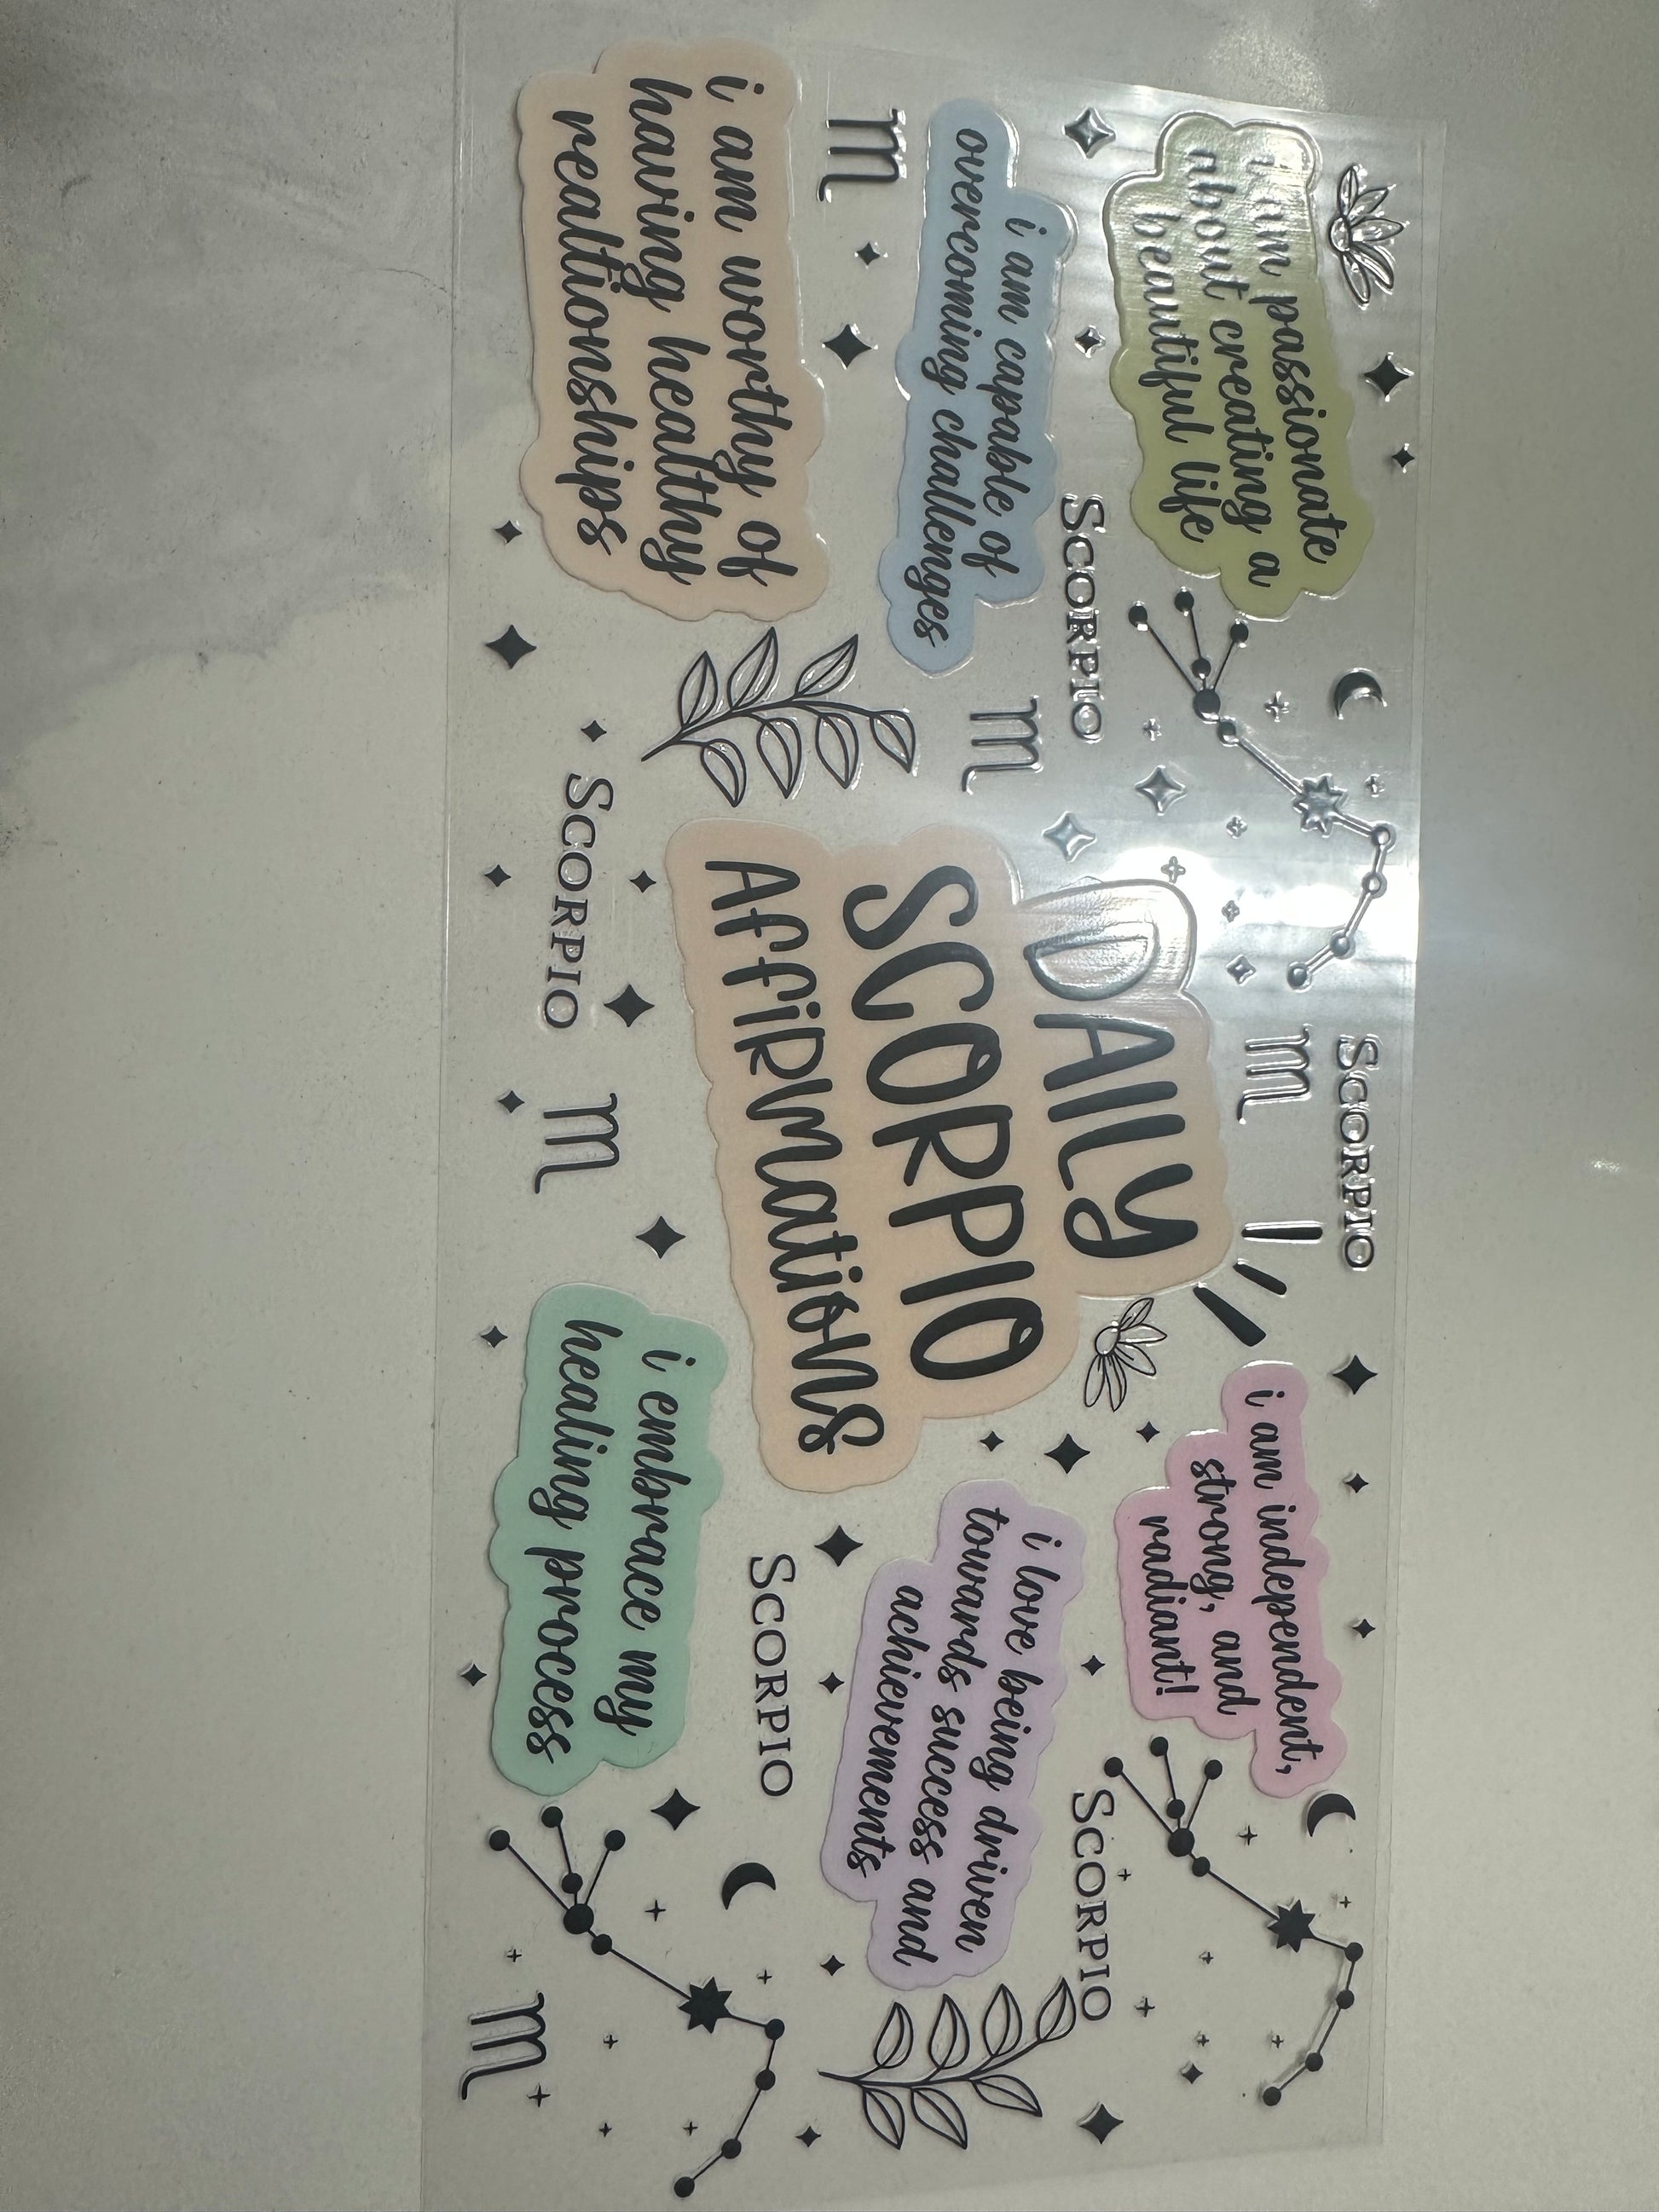 i am passionate
about creating a
beautiful life
SCORPIO
SCORPIO
i am independent,
strong, and
radiant!
i am capable of
overcoming challenges
DAILY
SCORPIO
AFFIRMATIONS
i love being driven
towards success and
achievements
SCORPIO
i am worthy of
having healthy
realtionships
SCORPIO
SCORPIO
i embrace my
healing process